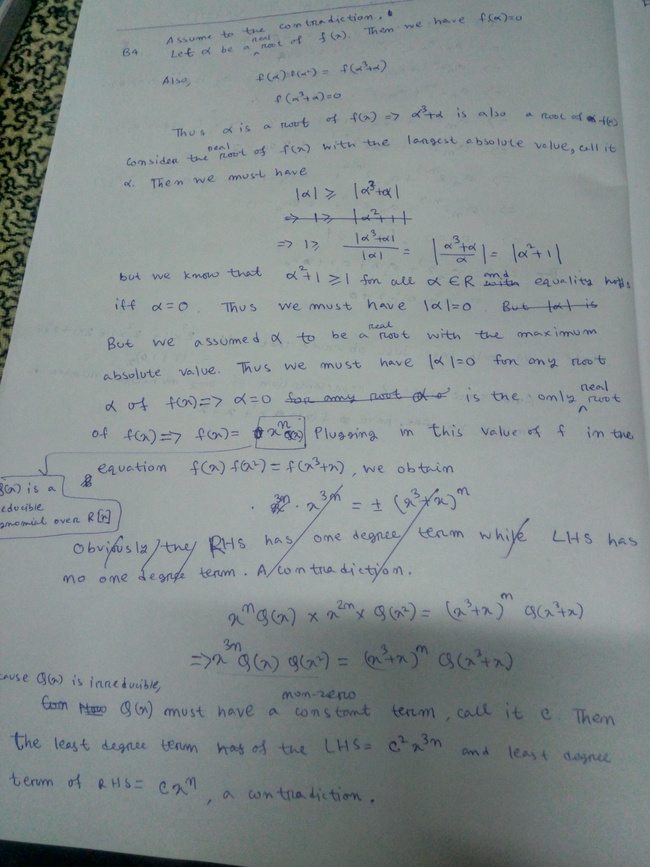 Assume to the contradiction,
B4. Let α be a real root of f(x). Then we have f(α)=0
Also, f(α) f(α²) = f(α³+α)
f(α³+α)=0
Thus α is a root of f(x) => α³+α is also a root of f(x)
Consider the real root of f(x) with the largest absolute value, call it
α. Then we must have
|α| ≥ |α³+α|
=> 1 ≥ |α²+1|
=> 1 ≥ |α³+α| / |α| = |α³+α / α| = |α²+1|
but we know that α²+1 ≥ 1 for all α ∈ R and with equality holds
iff α=0. Thus we must have |α|=0. But |α| is
But we assumed α to be a real root with the maximum
absolute value. Thus we must have |α|=0 for any root
α of f(x) => α=0 for any root α is the only real root
of f(x) => f(x) = xⁿ Q(x) Plugging in this value of f in the
equation f(x) f(x²) = f(x³+x), we obtain
Q(x) is a
educible
nomial over R[x]
x³ⁿ = ± (x³+x)ⁿ
Obviously, the RHS has one degree term while LHS has
no one degree term. A contradiction.
xⁿ Q(x) × x²ⁿ × Q(x²) = (x³+x)ⁿ Q(x³+x)
=> x³ⁿ Q(x) Q(x²) = (x³+x)ⁿ Q(x³+x)
cause Q(x) is irreducible,
non-zero
Q(x) must have a constant term, call it c. Then
the least degree term has of the LHS = c²x³ⁿ and least degree
term of RHS = cxⁿ, a contradiction.